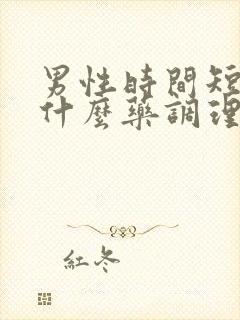 男性時間短
什麼藥調理
紅冬